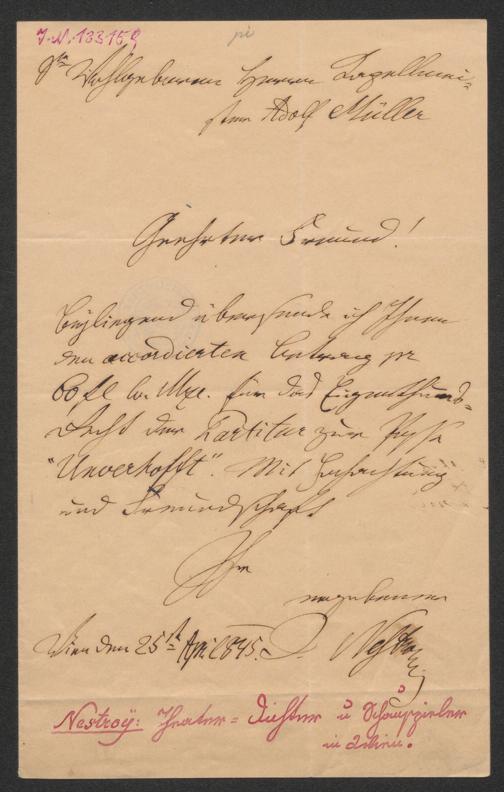 J.N. 133159
Sr Wohlgeboren Herrn Kapellmei-
ster Adolf Müller
Geehrter Freund!
Beyliegend übersende ich Ihnen
den accordierten Betrag pr
60 fl Co. Mze. für das Eigenthums-
Recht der Partitur zur Posse
"Unverhofft". Mit Hochachtung
und Freundschaft
Ihr
ergebener
Wien den 25t April 845. J. Nestroy
Nestroÿ: Theater=Dichter u Schauspieler
in Wien.